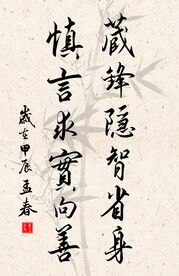 藏鋒隐智省身
慎言求實向善
歲在甲辰孟春